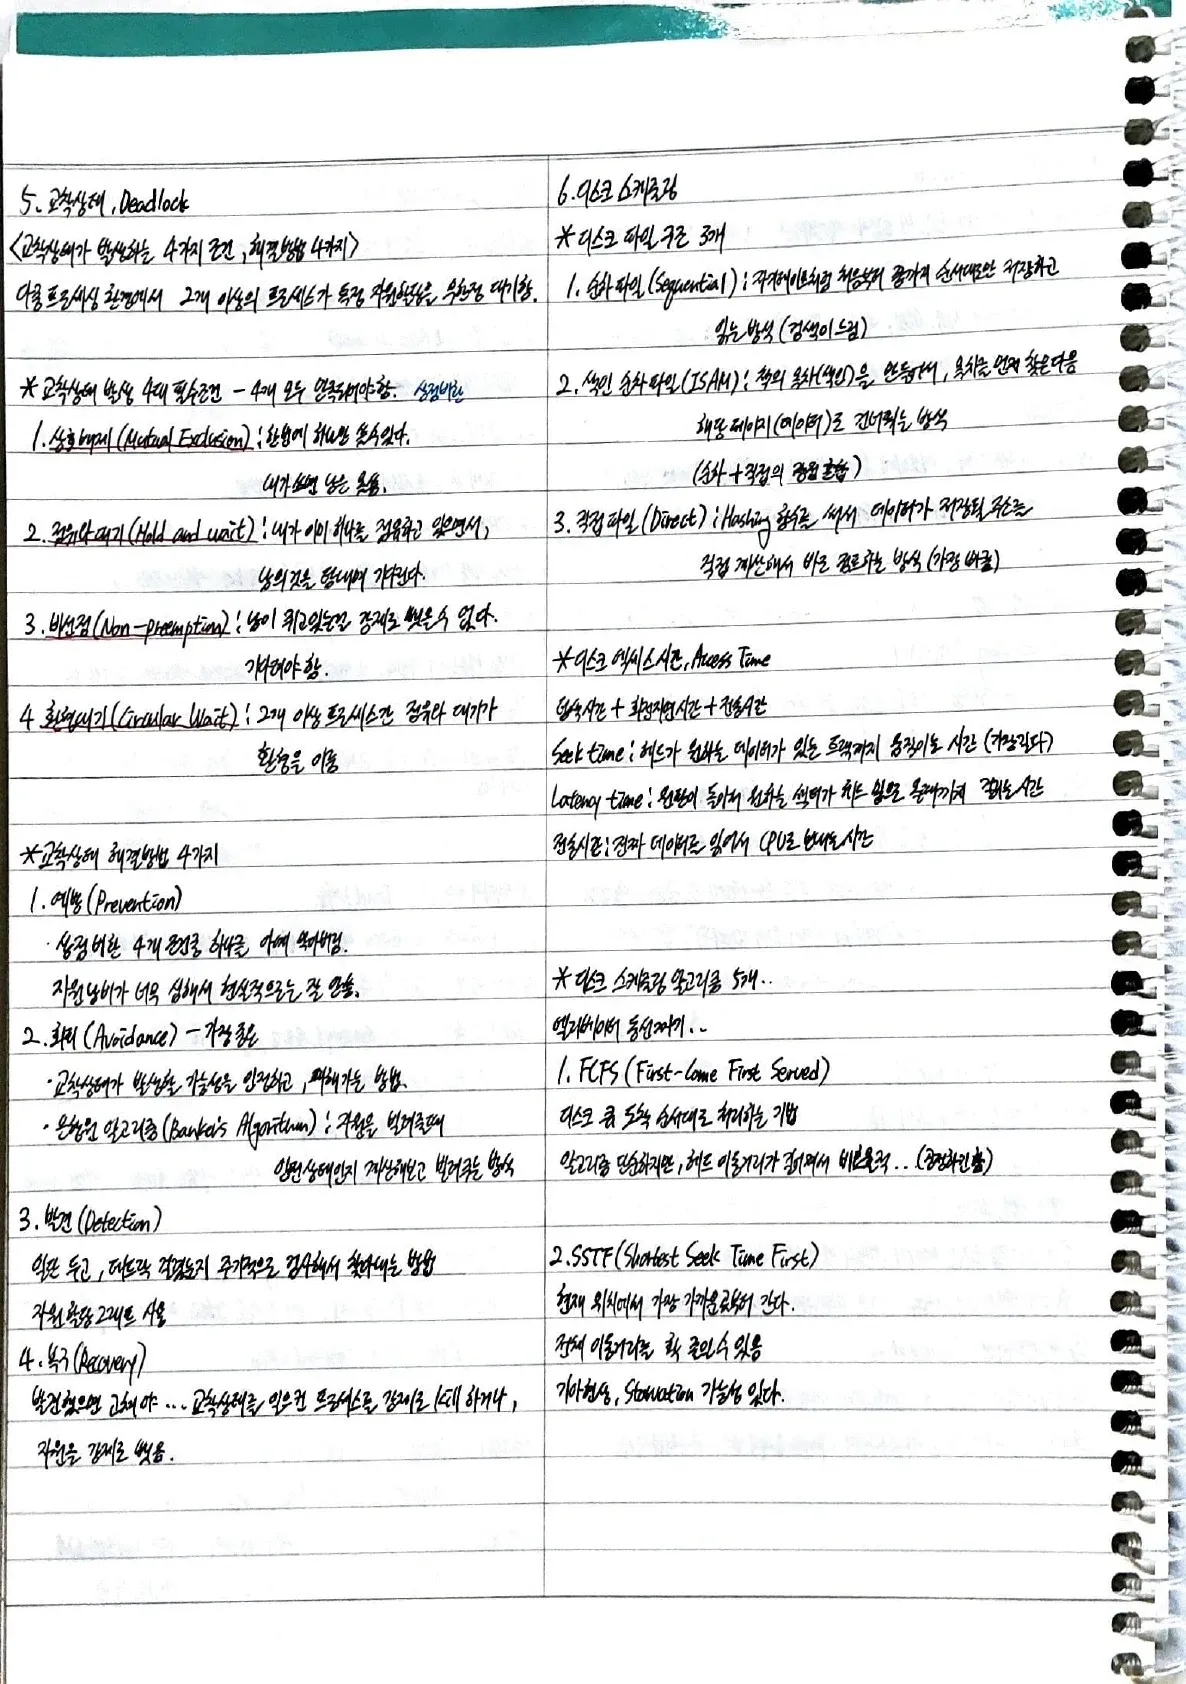 5. 교착상태, Deadlock
<교착상태가 발생하는 4가지 조건, 해결방법 4가지>
다중 프로세싱 환경에서 2개 이상의 프로세스가 특정 자원할당을 무한정 대기함.
* 교착상태 발생 4대 필수조건 - 4개 모두 만족되어야함. 상점비환
1. 상호배제(Mutual Exclusion) : 한번에 하나만 쓸수있다.
내가 쓰면 남은 못씀.
2. 점유와대기(Hold and wait) : 내가 이미 하나를 점유하고 있으면서,
남의것을 탐내며 기다린다.
3. 비선점(Non-preemption) : 남이 쥐고있는걸 강제로 뺏을수 없다.
기다려야 함.
4 환형대기(Circular Wait) : 2개 이상 프로세스간 점유와 대기가
환형을 이룸
* 교착상태 해결방법 4가지
1. 예방(Prevention)
· 상점비환 4개 조건중 하나를 아예 막아버림.
자원낭비가 너무 심해서 현실적으로는 잘 안씀.
2. 회피(Avoidance) - 가장 좋은
· 교착상태가 발생할 가능성을 인정하고, 피해가는 방법.
· 은행원 알고리즘(Banker's Algorithm) : 자원을 빌려줄때
안전상태인지 계산해보고 빌려주는 방식
3. 발견(Detection)
일단 두고, 데드락 걸렸는지 주기적으로 검사해서 찾아내는 방법
자원 할당 그래프 사용
4. 복구(Recovery)
발견했으면 고쳐야 ... 교착상태를 일으킨 프로세스를 강제로 kill 하거나,
자원을 강제로 뺏음.
6. 디스크 스케줄링
* 디스크 파일 구조 3개
1. 순차 파일(Sequential) : 자기테이프처럼 처음부터 끝까지 순서대로만 저장하고
읽는 방식(검색이 느림)
2. 색인 순차 파일(ISAM) : 책의 목차(색인)을 만들어서, 목차를 먼저 찾은다음
해당 페이지(데이터)로 건너뛰는 방식
(순차 + 직접의 장점 혼합)
3. 직접 파일(Direct) : Hashing 함수를 써서 데이터가 저장될 주소를
직접 계산해서 바로 접근하는 방식(가장 빠름)
* 디스크 엑세스시간, Access Time
탐색시간 + 회전지연시간 + 전송시간
Seek time : 헤드가 원하는 데이터가 있는 트랙까지 움직이는 시간 (가장길다)
Latency time : 원판이 돌아서 원하는 섹터가 헤드 밑으로 올때까지 걸리는 시간
전송시간 : 진짜 데이터를 읽어서 CPU로 보내는 시간
* 디스크 스케줄링 알고리즘 5개..
엘리베이터 동선짜기..
1. FCFS (First-Come First Served)
디스크 큐 도착 순서대로 처리하는 기법
알고리즘 단순하지만, 헤드 이동거리가 길어져서 비효율적.. (공정하긴 함)
2. SSTF(Shortest Seek Time First)
현재 위치에서 가장 가까운곳부터 간다.
전체 이동거리를 확 줄일수 있음
기아현상, Starvation 가능성 있다.